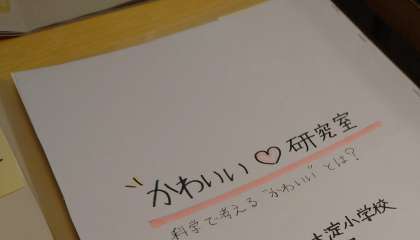 かわいい♡研究室
科学で考える“かわいい”とは?
淀小学校